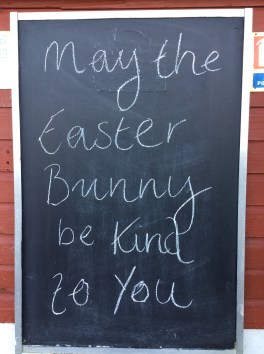 May the
Easter
Bunny
be Kind
to You